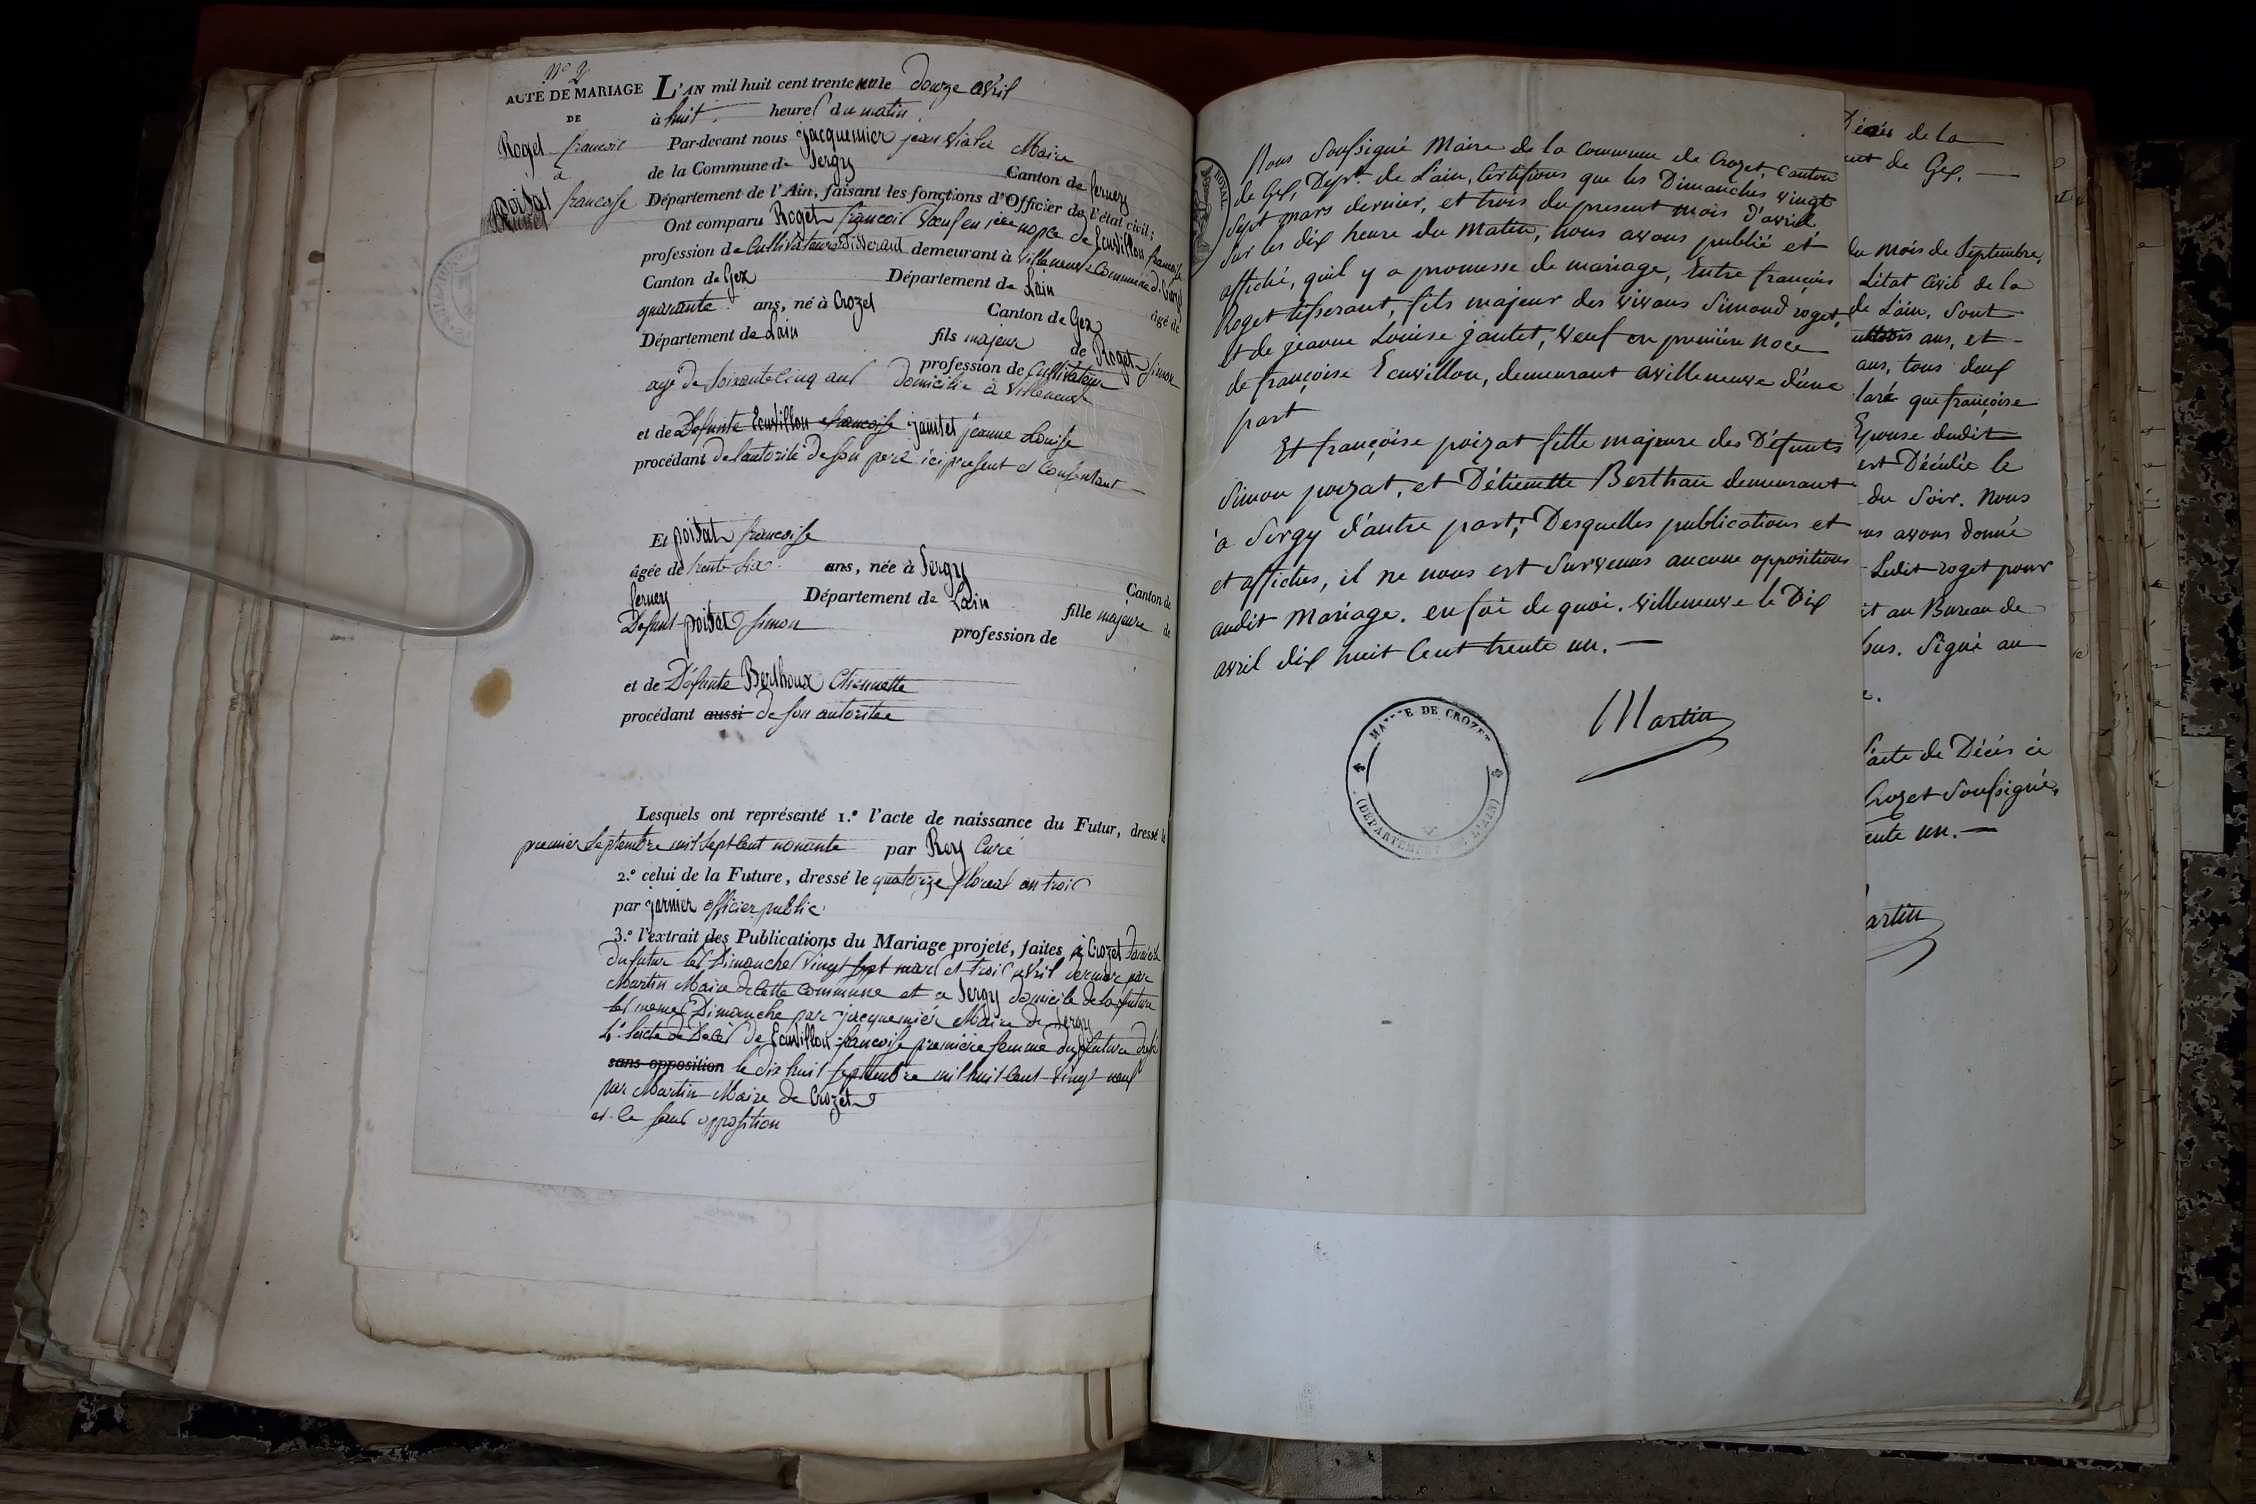 N° 2
ACTE DE MARIAGE
DE
Roget francois
à
Poisat francoise
L'AN mil huit cent trente un le douze avril
à huit heures du matin
Par-devant nous jacquemier jean Maire
de la Commune de Sergy Canton de ferney
Département de l'Ain, faisant les fonctions d'Officier de l'état civil;
Ont comparu Roget francois veuf en 1ere nopce de Ecuvillon francoise
profession de Cultivateur tisserant demeurant à Villeneuve Commune de Crozet
Canton de Gex Département de Lain âgé de
quarante ans, né à Crozet Canton de Gex
Département de Lain fils majeur de Roget Simon
profession de Cultivateur
age de soixante cinq ans domicilie à Villeneuve
et de Defunte Ecuvillon francoise jantet jeanne Louise
procédant de lautorité de son pere ici present et Consentant
Et poisat francoise
âgée de trente six ans, née à Sergy Canton de
ferney Département de Lain fille majeure de
Defunt poisat Simon profession de
et de Défunte Berthoux Etiennette
procédant aussi de son autoritee
Lesquels ont représenté 1.° l'acte de naissance du Futur, dressé le
premier Septembre mil sept cent nonante par Rey Curé
2.° celui de la Future, dressé le quatorze floreal an trois
par garnier officier public
3.° l'extrait des Publications du Mariage projeté, faites à Crozet domicile
du futur les Dimanches vingt sept mars et trois avril dernier par
Martin Maire de cette commune et a Sergy domicile de la future
les memes Dimanche par jacquemier Maire de Sergy
4.° lacte de Déces de Ecuvillon francoise premiere femme du future
sans opposition le dix huit septembre mil huit cent vingt neuf
par Martin Maire de Crozet
et le sans opposition
ROYAL
Nous Soussigné Maire de la commune de Crozet, canton
de Gex, Dépt. de L'ain, Certifions que les Dimanches vingt
sept mars dernier, et trois du present mois d'avril
sur les dix heure du matin, nous avons publié et
affiché, quil y a promesse de mariage, Entre françois
Roget tisserant, fils majeur des vivans Simond roget,
et de jeanne Louise jantet, veuf en première noce
de françoise Ecuvillon, demeurant avilleneuve d'une
part
Et françoise poizat fille majeure des Défunts
Simon poizat, et D'étiennette Berthau demeurant
à Sergy d'autre part; Desquelles publications et
et affiches, il ne nous est survenus aucune oppositions
audit Mariage. en foi de quoi. villeneuve le Dix
avril dix huit Cent trente un.
Martin
MAIRIE DE CROZET
(DÉPARTEMENT DE L'AIN)
Décès de la
de Gex.
du mois de Septembre,
L'état civil de la
de L'ain, sont
ans, et
ans, tous deux
laré que françoise
Epouse dudit
est Décédée le
du Soir. Nous
ns avons donné
Ledit roget pour
it au Bureau de
sus. Signé au
l'acte de Décès ci
Crozet soussigné,
ente un.
artin